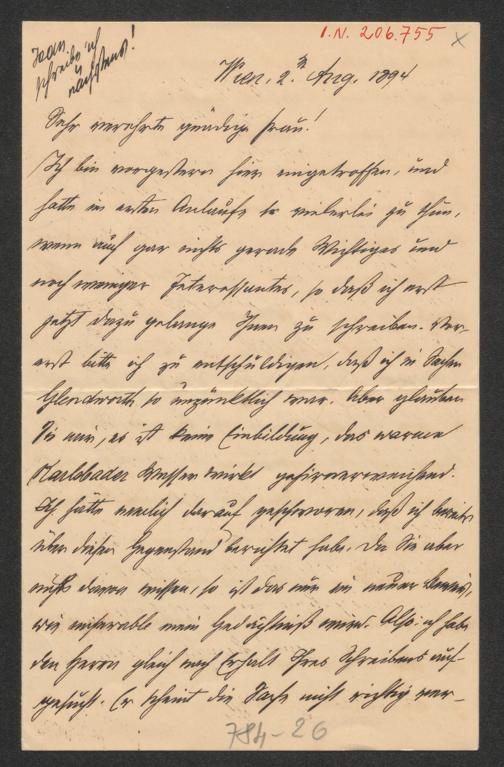 I.N. 206.755
Jean
schreibe ich
nächstens!
Wien, 2. Aug. 1894
Sehr verehrte gnädige Frau!
Ich bin vorgestern hier eingetroffen, und
hatte im ersten Anlaufe so vielerlei zu thun,
wenn auch gar nichts gerade Wichtiges und
noch weniger Interessantes, so daß ich erst
jetzt dazu gelange Ihnen zu schreiben. Vor-
erst bitte ich zu entschuldigen, daß ich in Sachen
so unpünktlich war. Aber glauben
Sie mir, es ist keine Einbildung, das warme
Karlsbader Wasser wirkt gehirnerweichend.
Ich hätte nemlich darauf geschworen, daß ich bereits
über diesen Gegenstand berichtet habe. Da Sie aber
nichts davon wissen, so ist das nur ein neuer Beweis,
wie miserable mein Gedächtniß wird. Also: ich habe
den Herrn gleich nach Erhalt Ihres Schreibens auf-
gesucht. Er scheint die Sache nicht richtig ver-
784-26